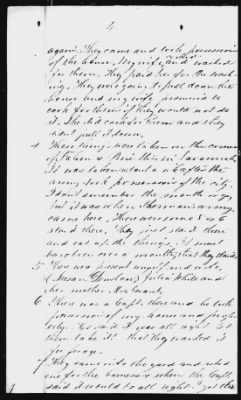 4
again. They came and took possession
of the house. My wife cooked and washed
for them. They paid her for the wash-
ing. They were going to pull down the
house and my wife promised to
cook for them if they would not do
it. She did cook for them and they
didn't pull it down.
4 These things were taken on the corner
of Fahm & Pine this in Savannah
It was taken about a week after the
army took possession of the city.
I don't remember the month or year
but it was when Sherman's army
came here. There were some
staid there. They just staid there
and eat up the things. It must
have been over a month that they staid.
5 You was present myself and wife,
(Susan Dowling) Julia White and
her mother
6 There was a Capt. there and he took
possession of my house and proper-
ty. He said it was all right to let
them take it: that they wanted it
for forage.
7 They came into the yard and asked
me for the harness when the Capt.
said it would be all right: yet the